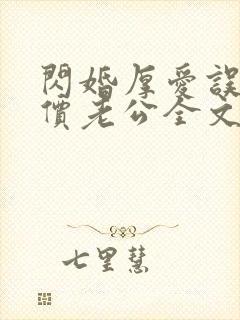 閃婚厚愛誤
價老公全文
七里慧